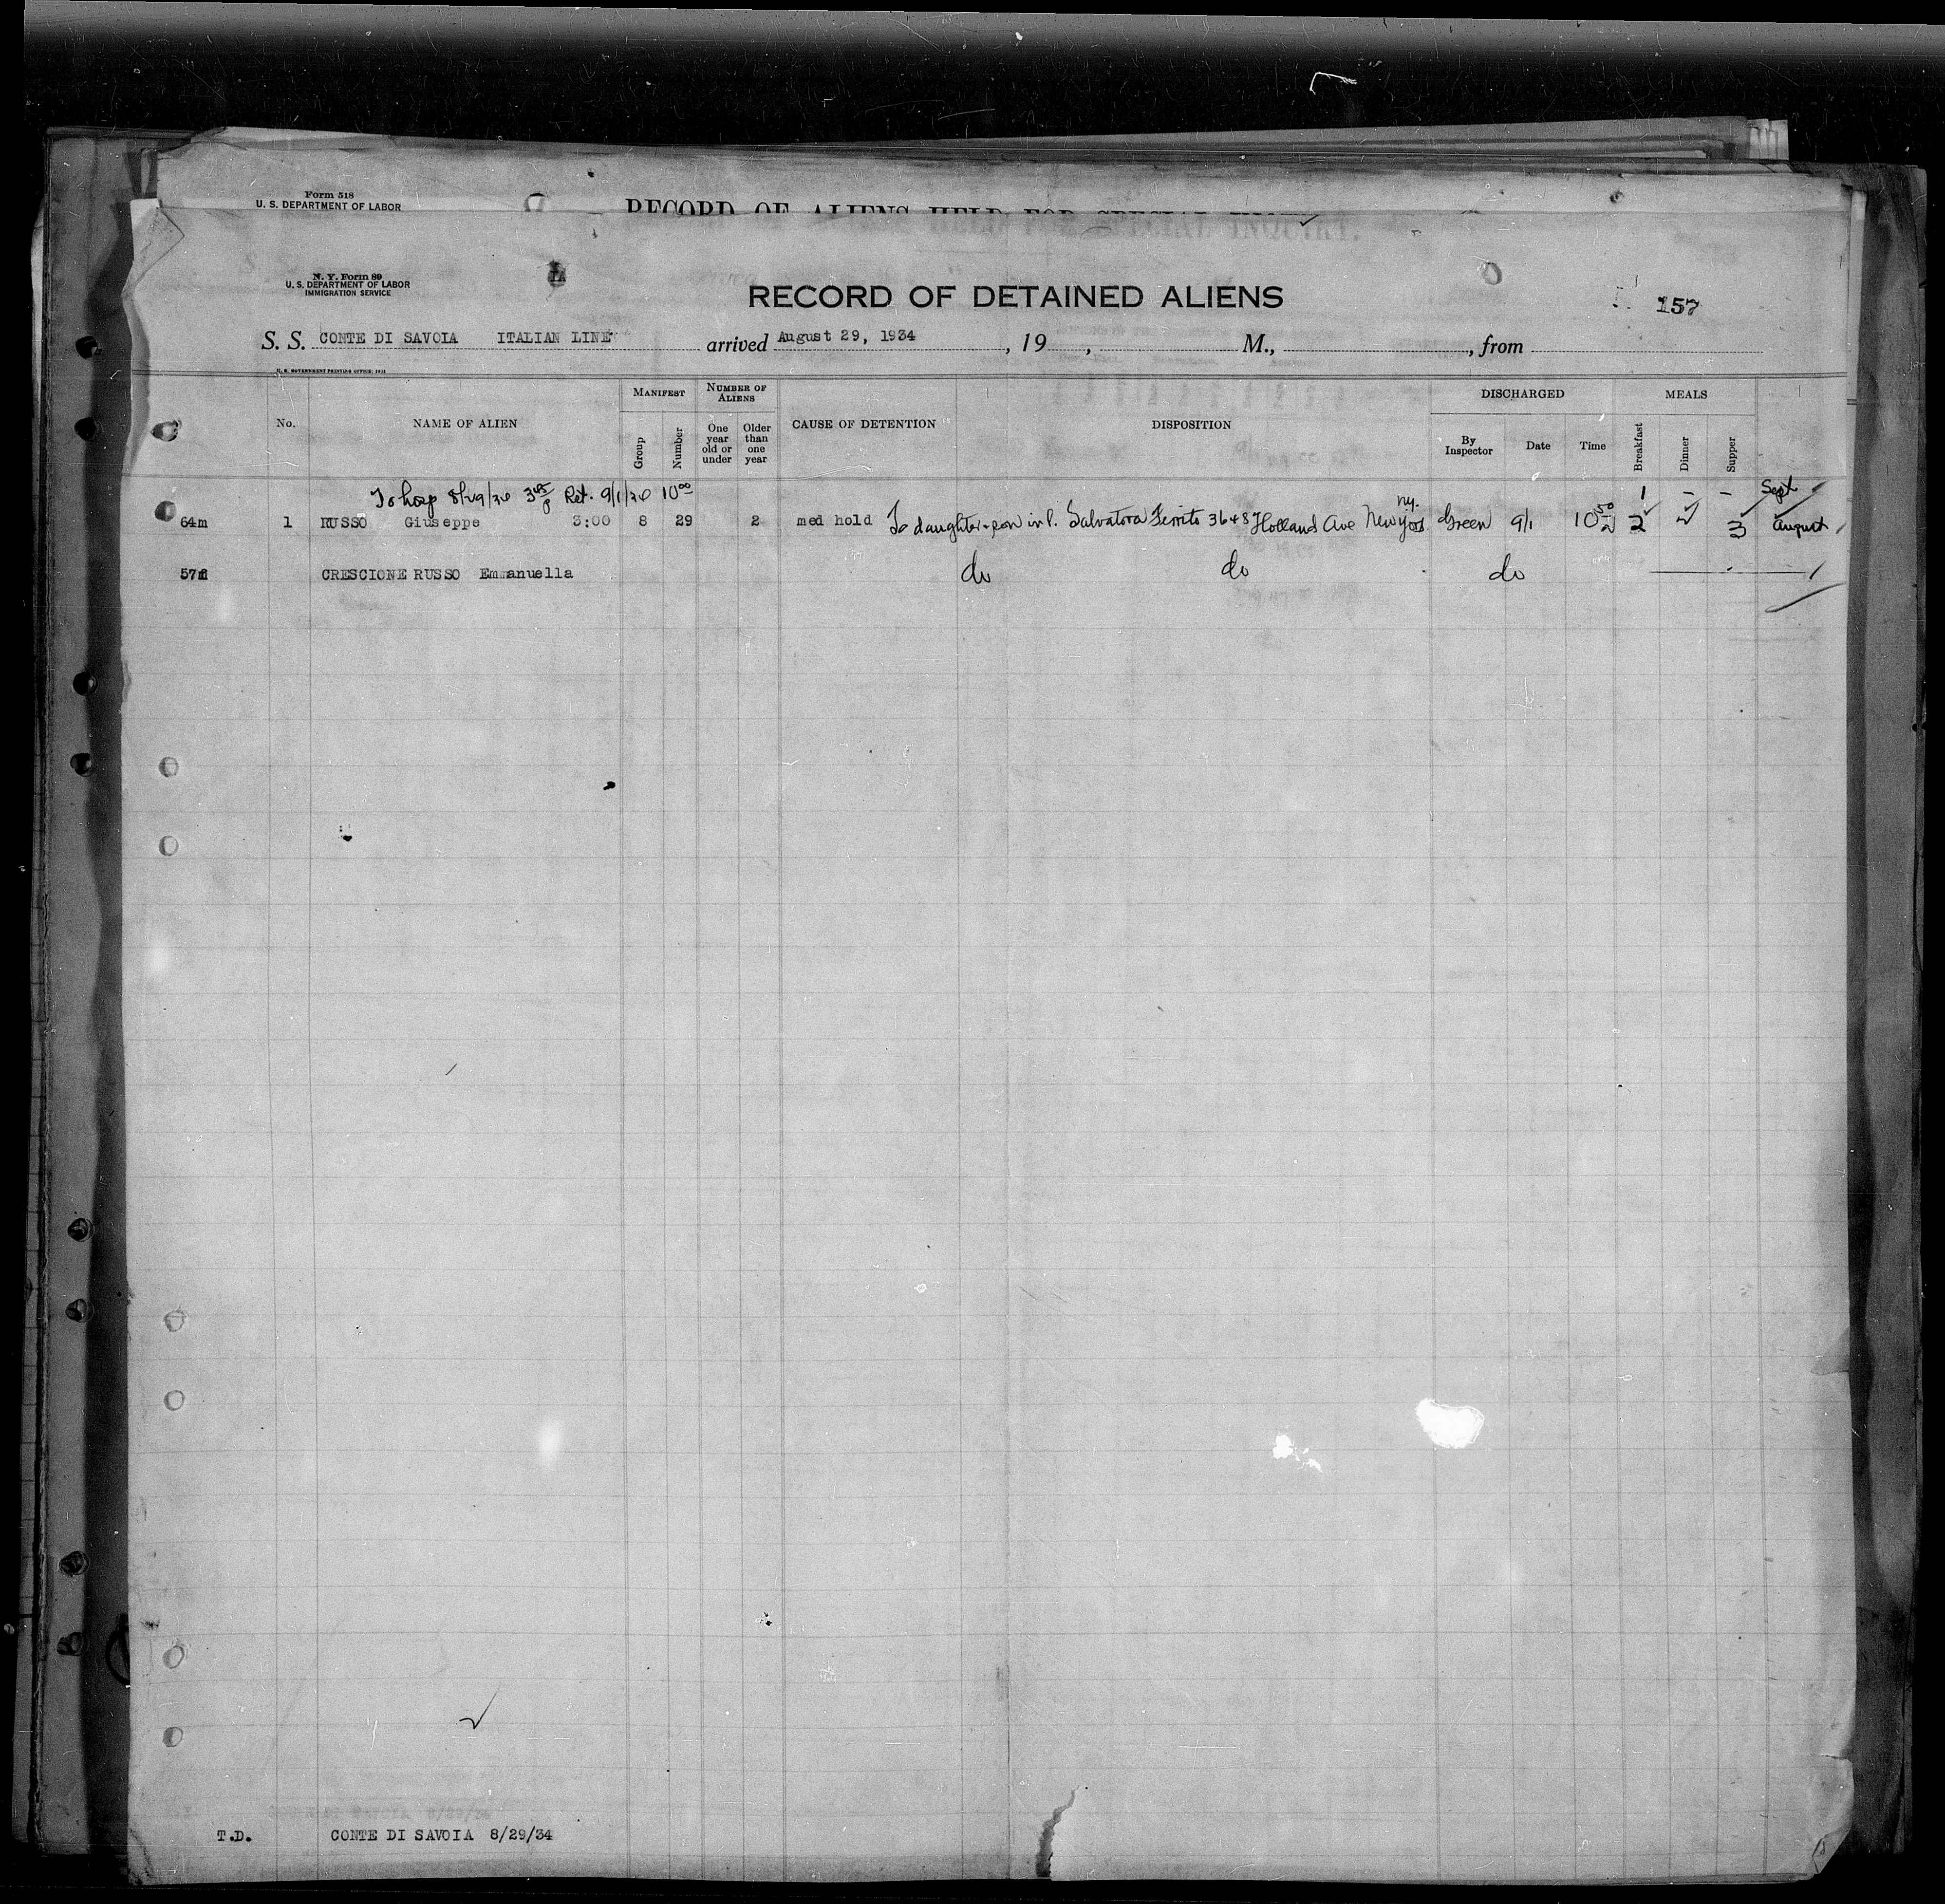 Form 518
U. S. DEPARTMENT OF LABOR
RECORD OF ALIENS HELD FOR SPECIAL INQUIRY.
N. Y. Form 89
U. S. DEPARTMENT OF LABOR
IMMIGRATION SERVICE
RECORD OF DETAINED ALIENS
157
S. S. CONTE DI SAVOIA ITALIAN LINE arrived August 29, 1934, 19 , M., , from
U. S. GOVERNMENT PRINTING OFFICE:
No. NAME OF ALIEN MANIFEST Group Number NUMBER OF ALIENS One year old or under Older than one year CAUSE OF DETENTION DISPOSITION DISCHARGED By Inspector Date Time MEALS Breakfast Dinner Supper
To hosp 8/29/34 3 45 Ret. 9/1/34 10 00 1 - - Sept
64m 1 RUSSO Giuseppe 3:00 8 29 2 med hold To daughter-son in l. Salvatora Ferrito 3648 Holland Ave New York N.Y. Green 9/1 10 50 2 2 3 August
57f CRESCIONE RUSSO Emmanuella do do do
T.D. CONTE DI SAVOIA 8/29/34